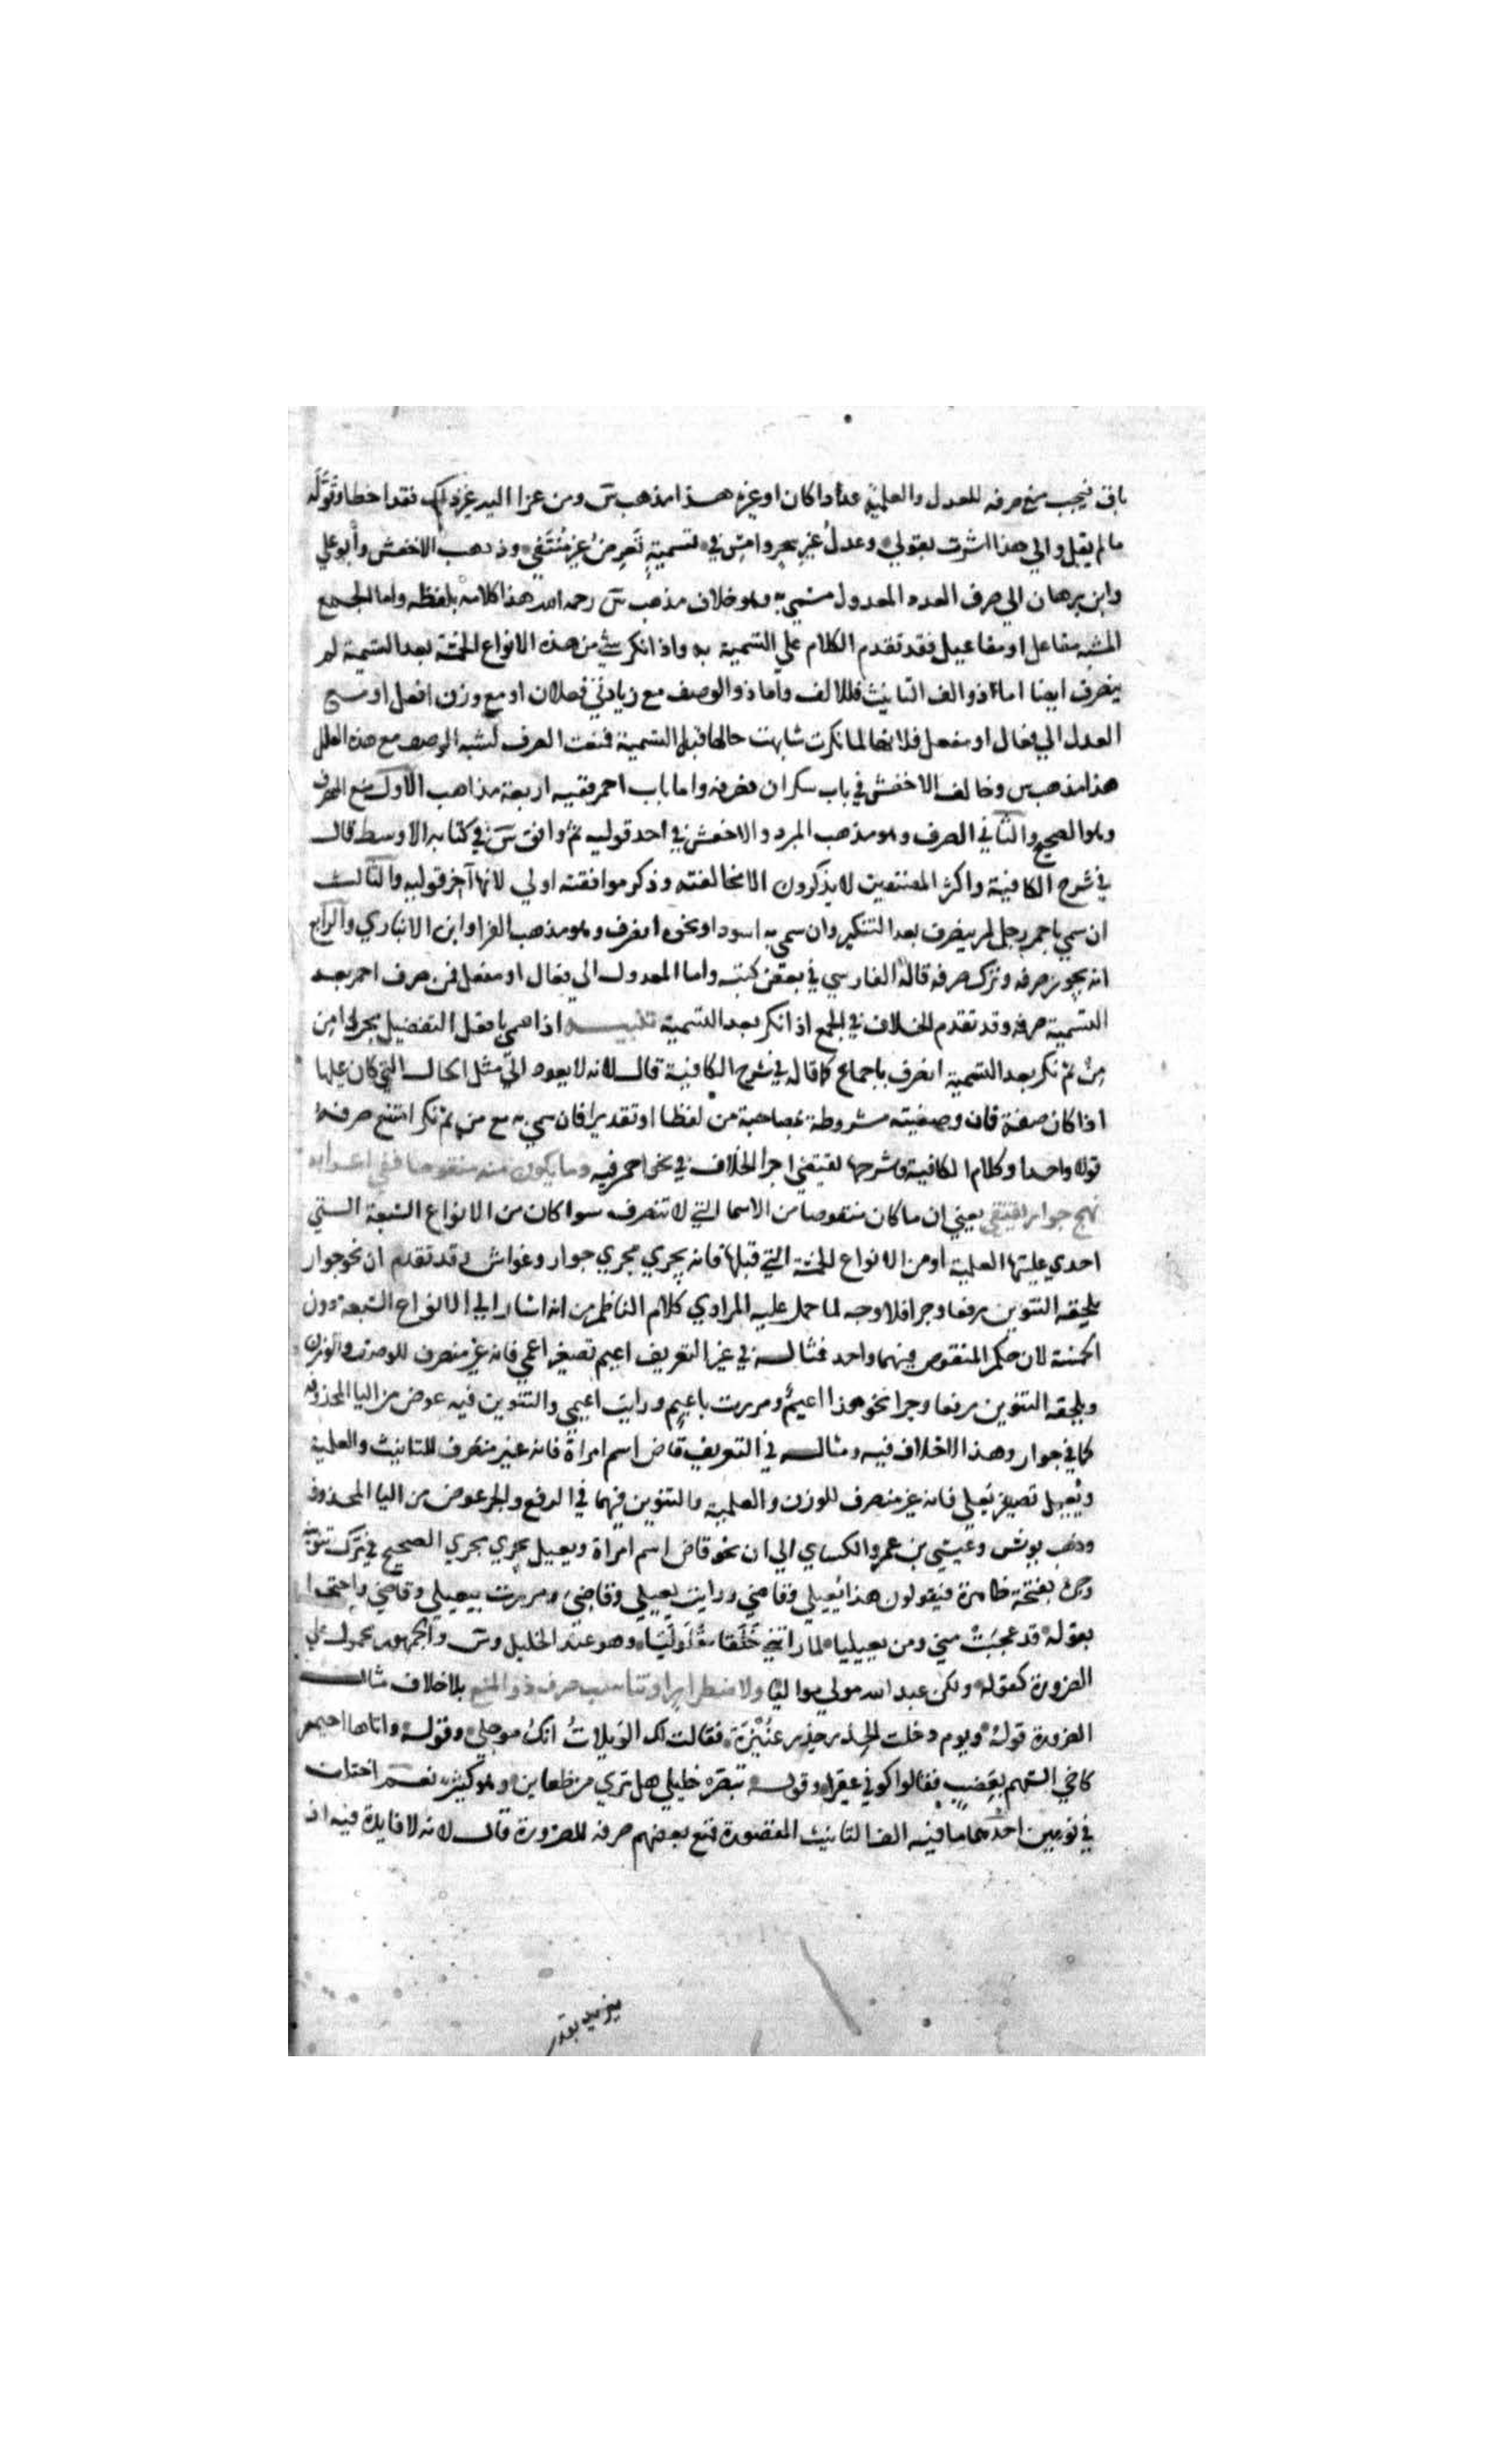 باق فيجب منع صرفه للعدل والعلمية عددا كان او غيره هذا مذهب س ومن عزا اليه غير ذلك فقد اخطا وقوله
ما لم يقل والي هذا اشرت بقولي وعدل غير سحر وامس في تسمية تعرض غير منتفي وذهب الاخفش وابو علي
وابن برهان الي صرف العدد المعدول مسمي به وهو خلاف مذهب س رحمه الله هذا كلامه بلفظه واما الجمع
المشبه مفاعل او مفاعيل فقد تقدم الكلام علي التسمية به واذا نكر شي من هذه الانواع الخمسة بعد التسمية لم
ينصرف ايضا اما ذو الف التانيث فللالف واما ذو الوصف مع زيادتي فعلان او مع وزن افعل او مع
العدل الي فعال او مفعل فلانها لما نكرت شابهت حالها قبل التسمية فمنعت الصرف لشبه الوصف مع هذه العلل
هذا مذهب س وخالف الاخفش في باب سكران فصرفه واما باب احمر ففيه اربعة مذاهب الاول منع الصرف
وهو الصحيح والثاني الصرف وهو مذهب المبرد والاخفش في احد قوليه ثم وافق س في كتابه الاوسط قال
في شرح الكافية واكثر المصنفين لا يذكرون الا مخالفته وذكر موافقته اولي لانها آخر قوليه والثالث
ان سمي باحمر رجل احمر لم ينصرف بعد التنكير وان سمي به اسود او نحوه انصرف وهو مذهب الفرا وابن الانباري والرابع
انه يجوز صرفه وترك صرفه قاله الفارسي في بعض كتبه واما المعدول الي فعال او مفعل فمن صرف احمر بعد
التسمية صرفه وقد تقدم الخلاف في الجمع اذا نكر بعد التسمية تنبيه اذا سمي بافعل التفضيل مجردا من
من ثم نكر بعد التسمية انصرف باجماع كما قاله في شرح الكافية قال لانه لا يعود الي مثل الحال التي كان عليها
اذا كان صفة فان وصفيته مشروطة بمصاحبة من لفظا او تقديرا فان سمي به مع من ثم نكر امتنع صرفه
قولا واحدا وكلام الكافية وشرحها يقتضي اجرا الخلاف في نحو احمر فيه وما يكون منه منقوصا ففي اعرابه
نهج جوار يقتفي يعني ان ما كان منقوصا من الاسما التي لا تنصرف سوا كان من الانواع السبعة التي
احدي علتيها العلمية او من الانواع الخمسة التي قبلها فانه يجري مجري جوار وغواش وقد تقدم ان نحو جوار
يلحقه التنوين رفعا وجرا فلا وجه لما حمل عليه المرادي كلام الناظم من انه اشار الي الانواع السبعة دون
الخمسة لان حكم المنقوص فيهما واحد فمثاله في غير التعريف اعيم تصغير اعمي فانه غير منصرف للوصف والوزن
ويلحقه التنوين رفعا وجرا نحو هذا اعيم ومررت باعيم ورايت اعيمي والتنوين فيه عوض من اليا المحذوفة
كما في جوار وهذا لا خلاف فيه ومثاله في التعريف قاض اسم امراة فانه غير منصرف للتانيث والعلمية
ويعيل تصغير يعلي فانه غير منصرف للوزن والعلمية والتنوين فيهما في الرفع والجر عوض من اليا المحذوفة
وذهب يونس وعيسي بن عمر والكساي الي ان نحو قاض اسم امراة ويعيل يجري مجري الصحيح في ترك تنوينه
وجره بفتحة ظاهرة فيقولون هذا يعيلي وقاضي ورايت يعيلي وقاضي ومررت بيعيلي وقاضي واحتجوا
بقوله قد عجبت مني ومن يعيليا لما راتني خلقا مقلوليا وهو عند الخليل وس والجمهور محمول علي
الضرورة كقوله ولكن عبد الله مولي مواليا ولاضطرار او تناسب صرف ذو المنع بلا خلاف مثال
الضرورة قوله ويوم دخلت الخدر خدر عنيزة فقالت لك الويلات انك مرجلي وقوله واتاها احيمر
كاخي السهم بعضب فقالوا كوني عقيرا وقوله تبصر خليلي هل تري من ظعاين وهو كثير نعم اختلف
في نوعين احدهما ما فيه الف التانيث المقصورة فمنع بعضهم صرفه للضرورة قال لانه لا فايدة فيه اذ
يزيد بقدر